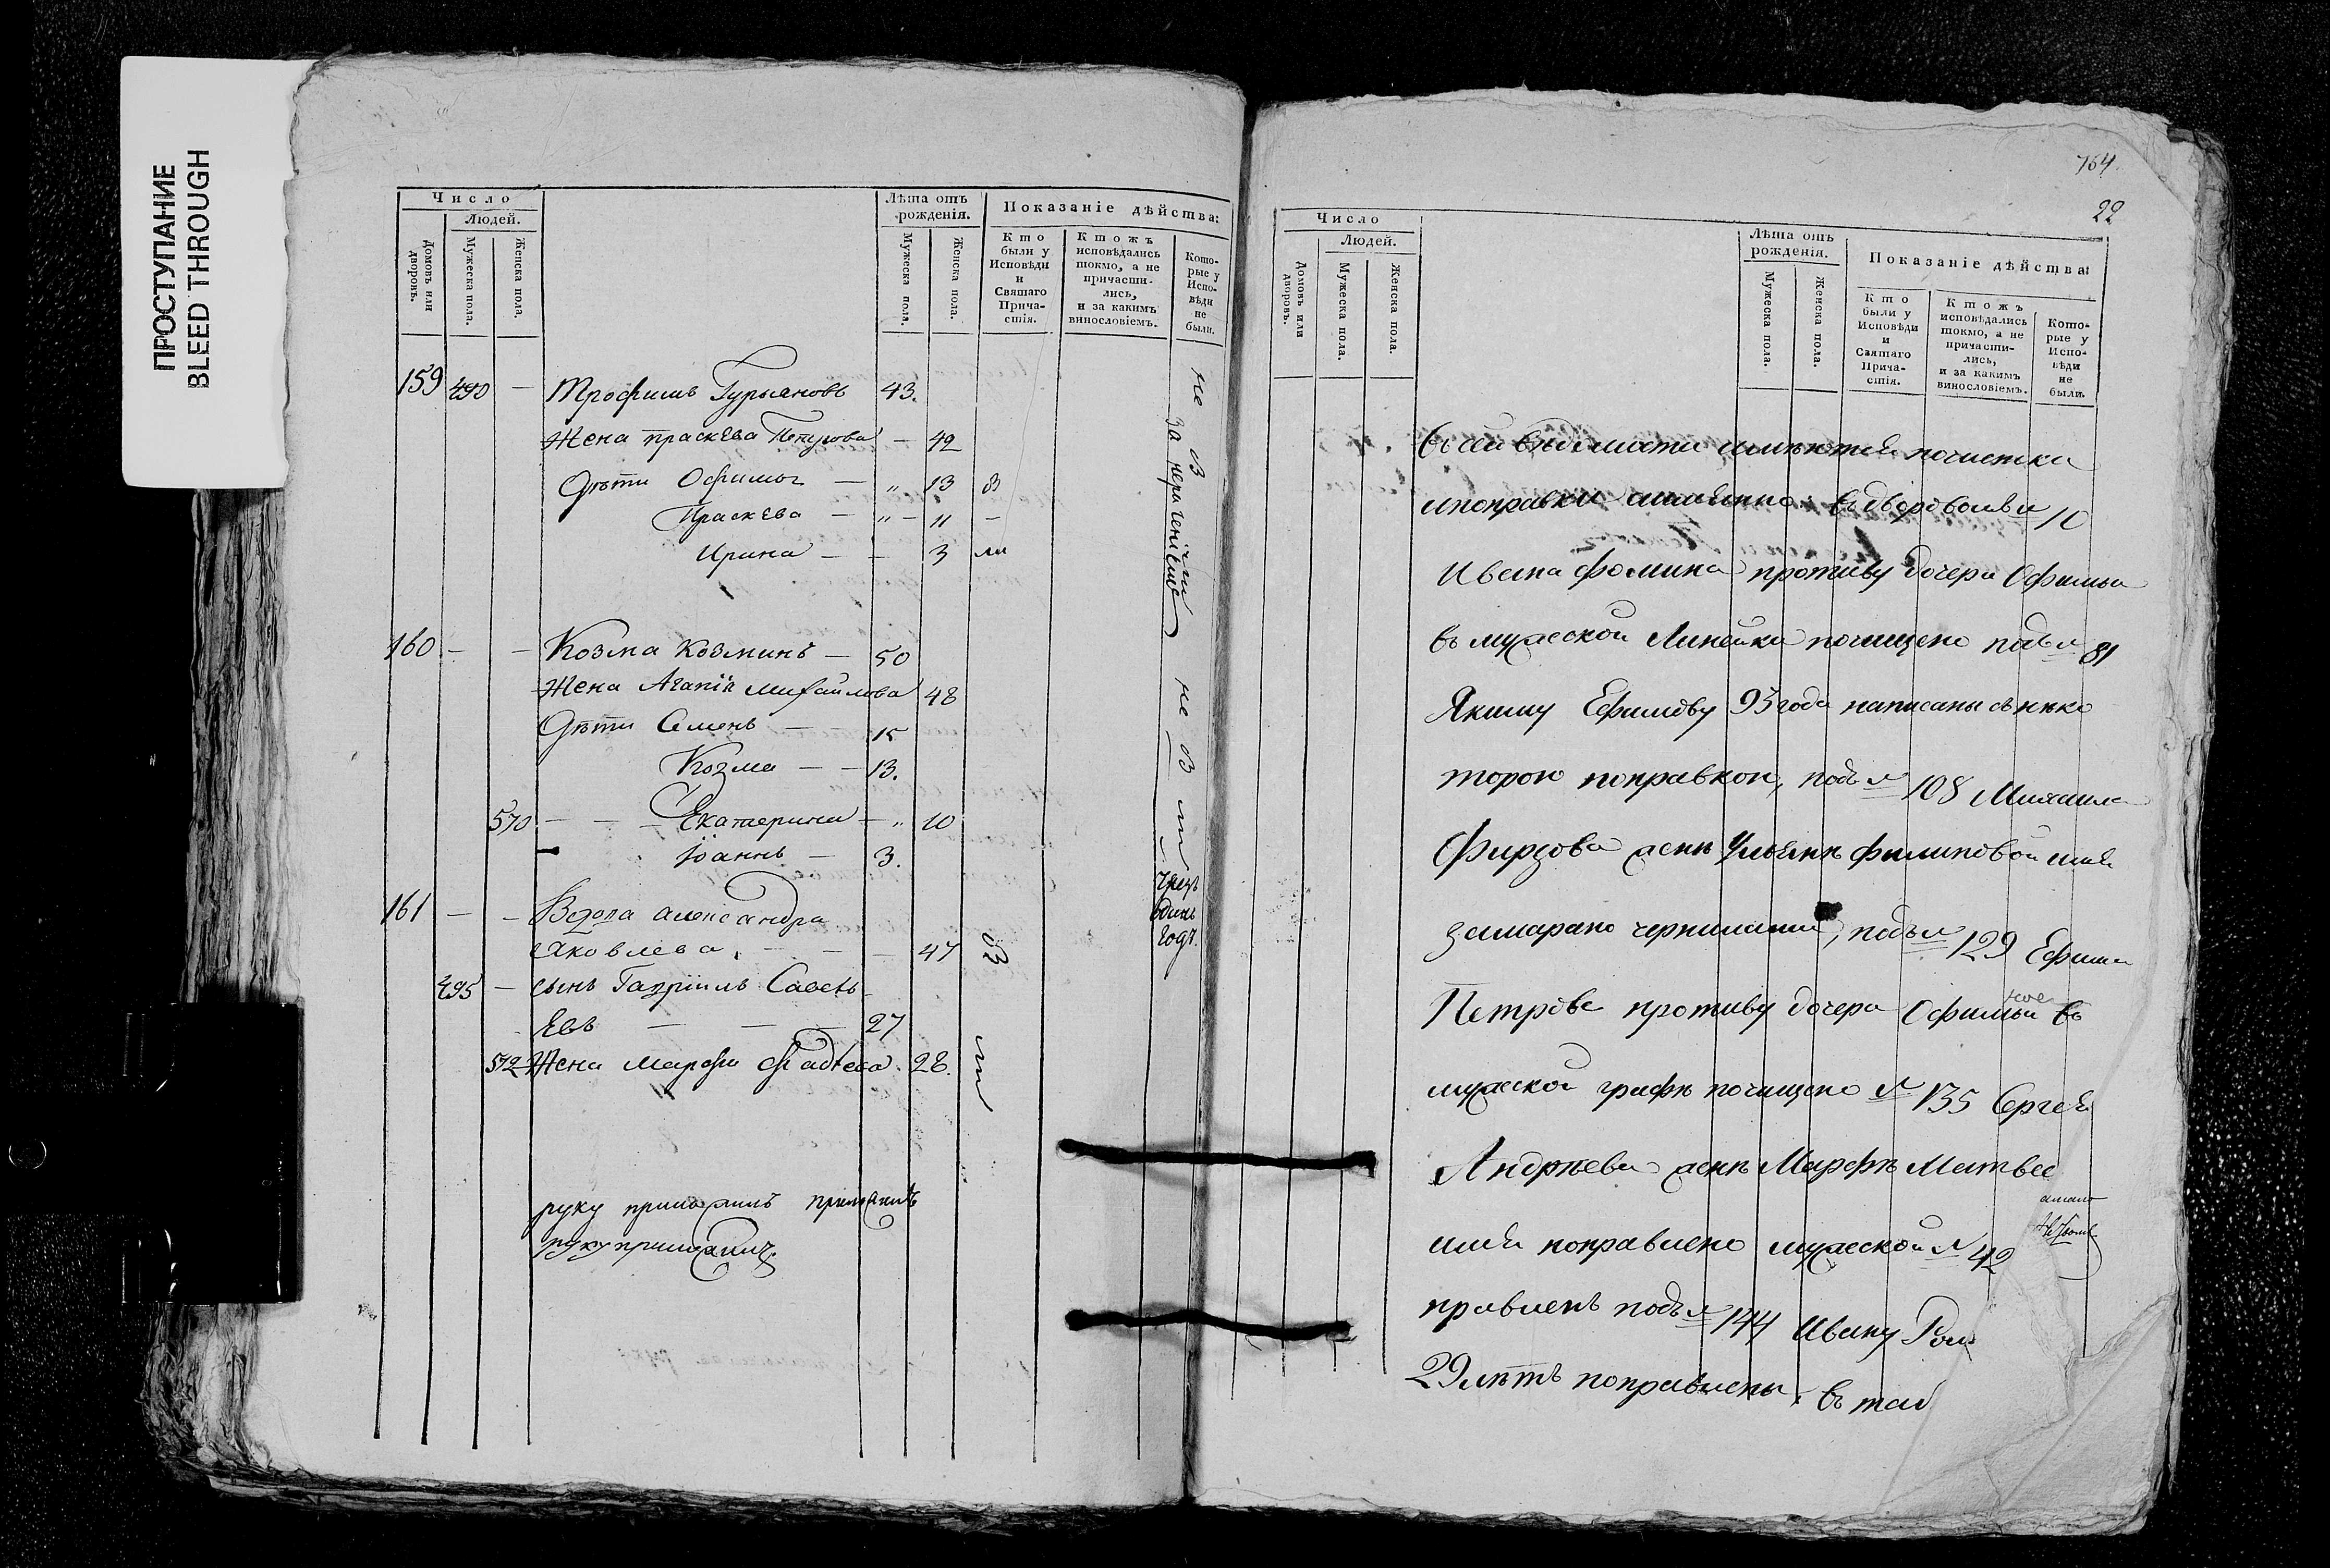 ПРОСТУПАНИЕ
BLEED THROUGH
Число
Людей.
Домовъ или дворовъ.
Мужеска пола.
Женска пола.
Лѣта отъ рожденія.
Мужеска пола.
Женска пола.
Показаніе дѣйства:
Кто были у Исповѣди и Святаго Прича-стія.
Ктожъ исповѣдались токмо, а не причасти-лись, и за какимъ винословіемъ.
Кото-рые у Испо-вѣди не были.
159 490 — Трофимъ Гурьяновъ 43.
Жена Праскева Петрова — 42
Дѣти Офимья — „ 13 в
Праскева — „ — 11 —
Ирина — — 3 ли
не в
за нерачениемъ
160 — — Козма Козминъ — 50
Жена Агапія Михайлова 48
Дѣти Семенъ — — 15
Козма — — 13.
570 — — Екатерина — „ 10
Іоаннъ — 3.
не в
чрезъ
одинъ
годъ.
161 — — Вдова Александра
Яковлева. — — — 47
495 — сынъ Гавріилъ Савель
Евъ — — — 27
572 Жена Марфа Фадѣева. 28.
руку приложилъ
руку приложилъ
764.
22
Число
Людей.
Домовъ или дворовъ.
Мужеска пола.
Женска пола.
Лѣта отъ рожденія.
Мужеска пола.
Женска пола.
Показаніе дѣйства:
Кто были у Исповѣди и Святаго Прича-стія.
Ктожъ исповѣдались токмо, а не причасти-лись, и за какимъ винословіемъ.
Кото-рые у Испо-вѣди не были.
Въ сей вѣдомости имѣются почистки
и поправки а именно: въ дворовомъ № 10
Ивана Фомина противу дочери Офимьи
въ мужеской линейки почищено подъ № 81
Якиму Ефимову 95 года написаны съ нѣко
торою поправкою, подъ № 108 Михаила
женѣ Ульянѣ Филиповой имя
замарано чернилами, подъ № 129 Ефима
Петрова противу дочери Офимьи въ
мужеской графѣ почищено № 135 Сергея
Андрѣева женѣ Марфѣ Матвее
имя поправлено мужеской № 42
правленъ подъ № 144 Ивану Ром
29 лѣтъ поправлены, въ той